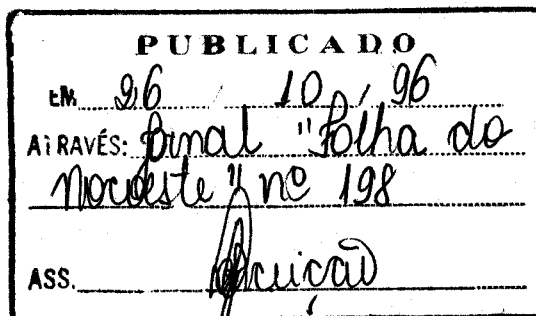 PUBLICADO
EM 26 / 10 / 96
ATRAVÉS: Jornal "Folha do
Noroeste" nº 198
ASS.